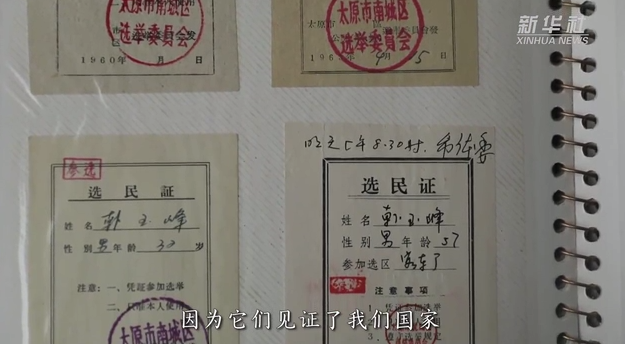 新华社
XINHUA NEWS
太原市南城区
选举委員会
1960年 月 日
太原市南城区
选举委員会
4月5日
参选
选民証
姓名 韩玉峰
性别 男 年龄 33 岁
注意：一、凭証参加选举
二、只准本人使用
太原市南城区
8.30时.
选民证
姓名 韩玉峰
性别 男 年龄 57
参加选区
注意事项
1.凭证参加选举
因为它们见证了我们国家